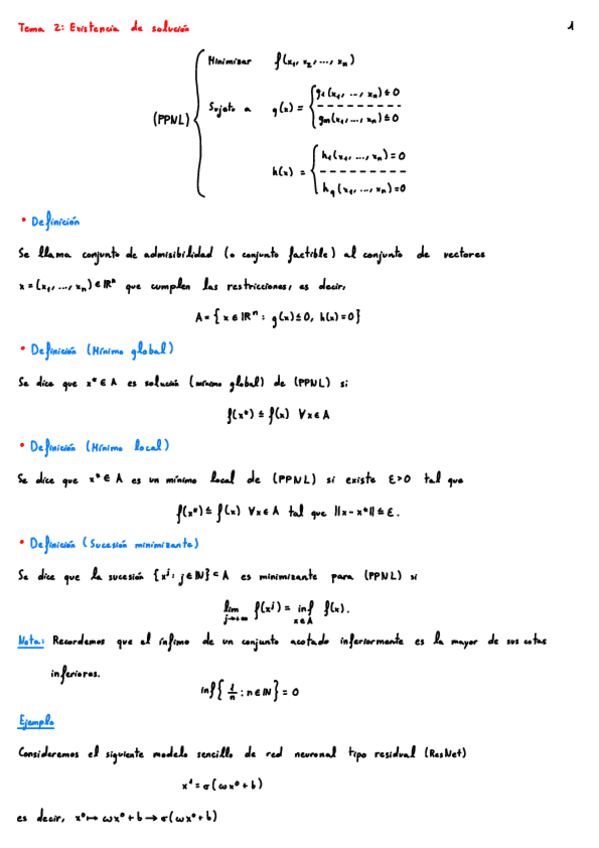 Tema 2: Existencia de solución 1
Minimizar f(x₁, x₂, ..., xₙ)
(PPNL) Sujeto a g(x) = { g₁(x₁, ..., xₙ) ≤ 0
gₘ(x₁, ..., xₙ) ≤ 0
h(x) = { h₁(x₁, ..., xₙ) = 0
h_q(x₁, ..., xₙ) = 0
• Definición
Se llama conjunto de admisibilidad (o conjunto factible) al conjunto de vectores
x = (x₁, ..., xₙ) ∈ ℝⁿ que cumplen las restricciones, es decir,
A = { x ∈ ℝⁿ : g(x) ≤ 0, h(x) = 0 }
• Definición (Mínimo global)
Se dice que x* ∈ A es solución (mínimo global) de (PPNL) si
f(x*) ≤ f(x) ∀x ∈ A
• Definición (Mínimo local)
Se dice que x* ∈ A es un mínimo local de (PPNL) si existe ε > 0 tal que
f(x*) ≤ f(x) ∀x ∈ A tal que ||x - x*|| ≤ ε.
• Definición (Sucesión minimizante)
Se dice que la sucesión {xʲ : j ∈ ℕ} ⊂ A es minimizante para (PPNL) si
lim j→+∞ f(xʲ) = inf x∈A f(x).
Nota: Recordemos que el ínfimo de un conjunto acotado inferiormente es la mayor de sus cotas
inferiores.
inf { 1/n : n ∈ ℕ } = 0
Ejemplo
Consideremos el siguiente modelo sencillo de red neuronal tipo residual (ResNet)
x¹ = σ(ωx⁰ + b)
es decir, x⁰ ↦ ωx⁰ + b → σ(ωx⁰ + b)